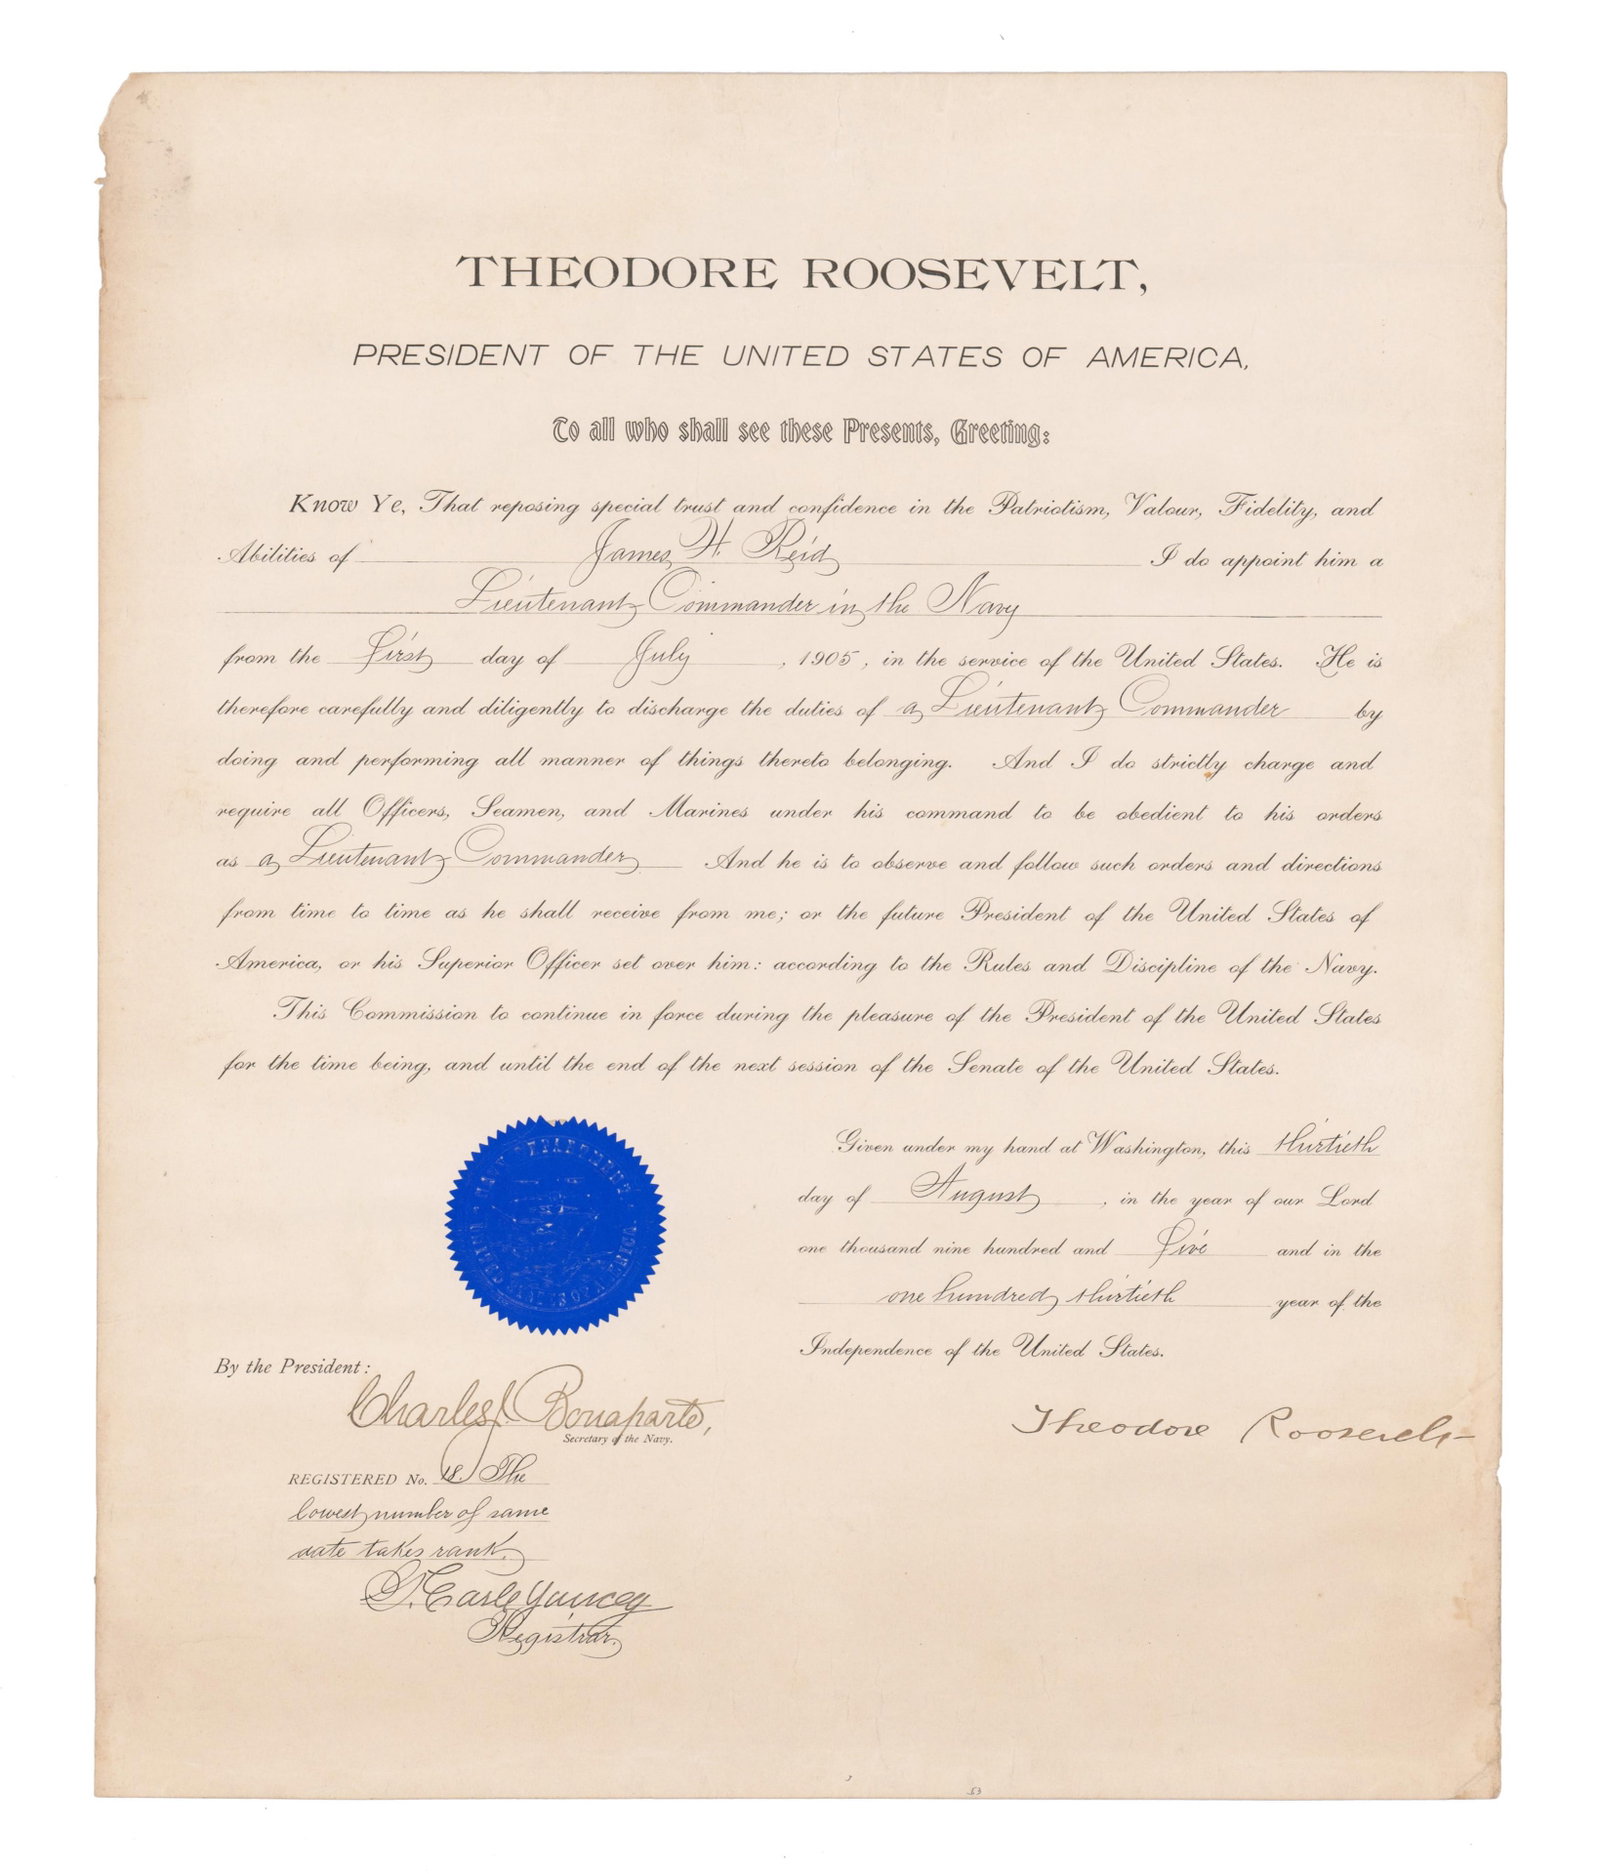 THEODORE ROOSEVELT,
PRESIDENT OF THE UNITED STATES OF AMERICA,
To all who shall see these Presents, Greeting:
Know Ye, That reposing special trust and confidence in the Patriotism, Valour, Fidelity, and
Abilities of James H. Reid I do appoint him a
Lieutenant Commander in the Navy
from the first day of July, 1905, in the service of the United States. He is
therefore carefully and diligently to discharge the duties of a Lieutenant Commander by
doing and performing all manner of things thereto belonging. And I do strictly charge and
require all Officers, Seamen, and Marines under his command to be obedient to his orders
as a Lieutenant Commander And he is to observe and follow such orders and directions
from time to time as he shall receive from me; or the future President of the United States of
America, or his Superior Officer set over him: according to the Rules and Discipline of the Navy.
This Commission to continue in force during the pleasure of the President of the United States
for the time being, and until the end of the next session of the Senate of the United States.
Given under my hand at Washington, this thirtieth
day of August, in the year of our Lord
one thousand nine hundred and five and in the
one hundred thirtieth year of the
Independence of the United States.
NAVY DEPARTMENT
UNITED STATES OF AMERICA
By the President:
Charles J. Bonaparte,
Secretary of the Navy.
Theodore Roosevelt
REGISTERED No. 18. The
lowest number of same
date takes rank.
Earle Yancey
Registrar.
53